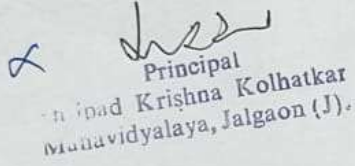 Principal
Krishna Kolhatkar
Mahavidyalaya, Jalgaon (J).